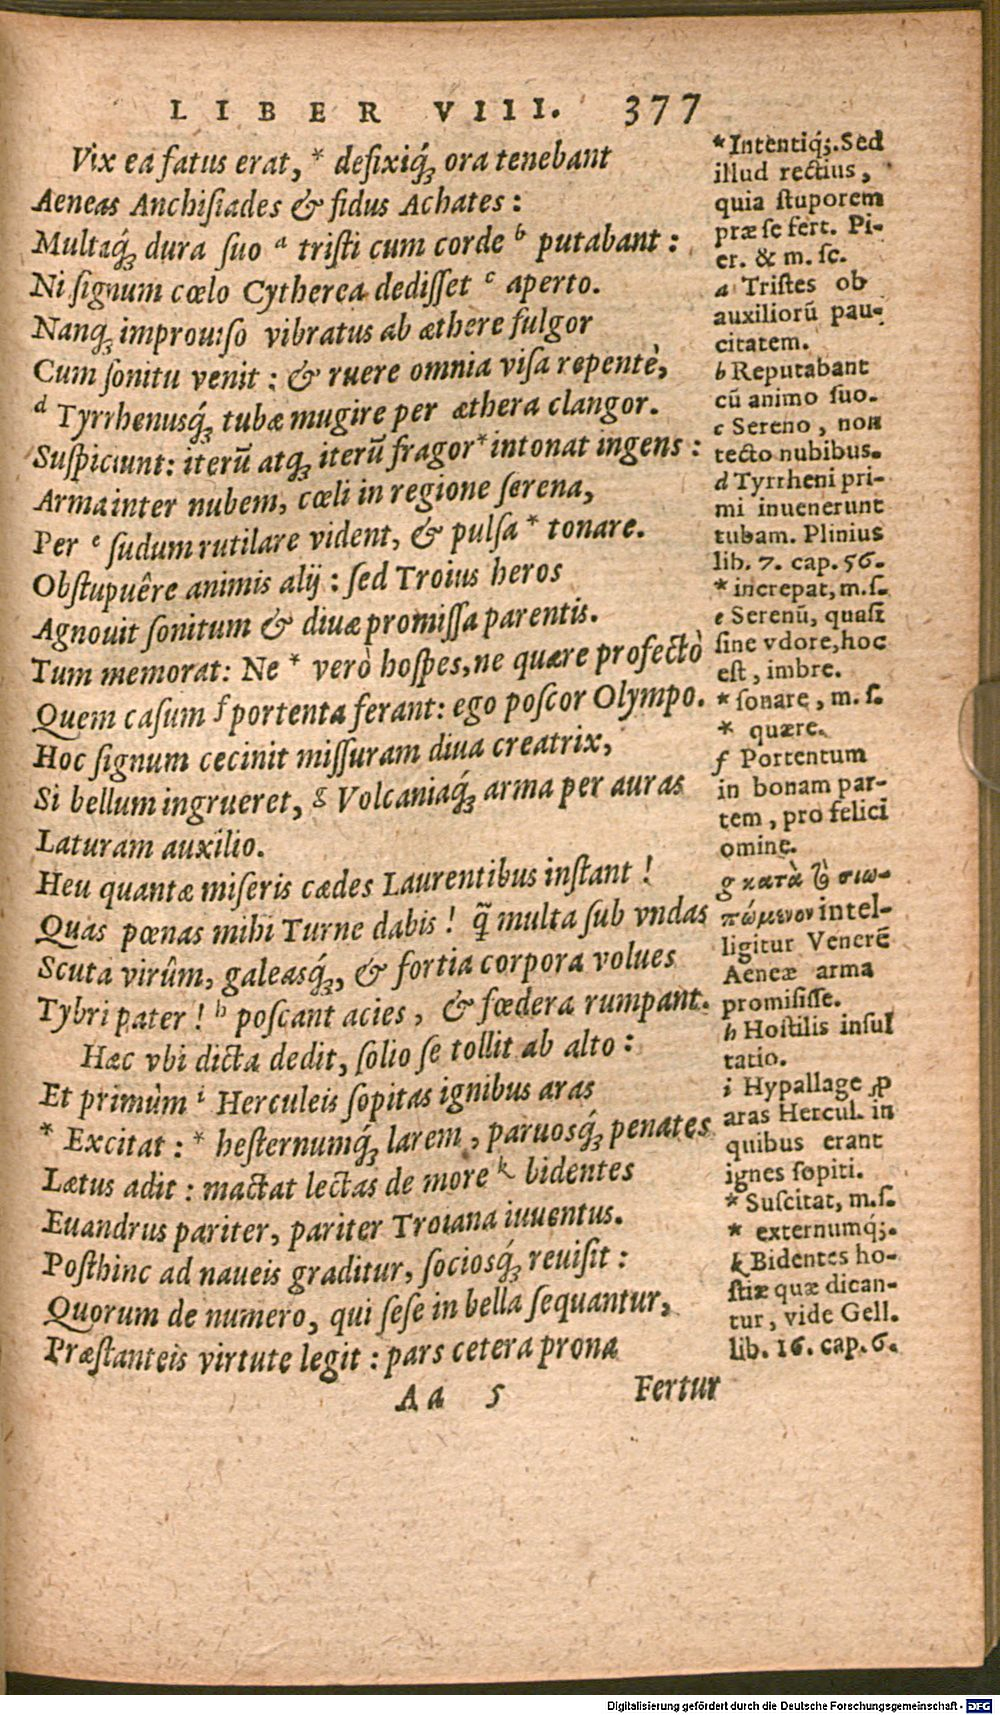 LIBER VIII. 377
Vix ea fatus erat, * defixiq́ꝫ ora tenebant
Aeneas Anchiſiades & fidus Achates :
Multaq́ꝫ dura ſuo ᵃ triſti cum corde ᵇ putabant :
Ni ſignum cœlo Cytherea dediſſet ᶜ aperto.
Nanqꝫ improuiſo vibratus ab æthere fulgor
Cum ſonitu venit : & ruere omnia viſa repentè,
ᵈ Tyrrhenusq́ꝫ tubæ mugire per æthera clangor.
Suſpiciunt: iterū atqꝫ iterū fragor * intonat ingens :
Arma inter nubem, cœli in regione ſerena,
Per ᵉ ſudum rutilare vident, & pulſa * tonare.
Obſtupuêre animis alij : ſed Troius heros
Agnouit ſonitum & diuæ promiſſa parentis.
Tum memorat: Ne * verò hoſpes, ne quære profectò
Quem caſum ᶠ portenta ferant: ego poſcor Olympo.
Hoc ſignum cecinit miſſuram diua creatrix,
Si bellum ingrueret, ᵍ Volcaniaq́ꝫ arma per auras
Laturam auxilio.
Heu quantæ miſeris cædes Laurentibus inſtant !
Quas pœnas mihi Turne dabis ! q̃ multa ſub vndas
Scuta virûm, galeasq́ꝫ, & fortia corpora volues
Tybri pater ! ʰ poſcant acies, & fœdera rumpant.
Hæc vbi dicta dedit, ſolio ſe tollit ab alto :
Et primùm ⁱ Herculeis ſopitas ignibus aras
* Excitat : * heſternumq́ꝫ larem, paruosq́ꝫ penates
Lætus adit : mactat lectas de more ᵏ bidentes
Euandrus pariter, pariter Troiana iuuentus.
Poſthinc ad naueis graditur, ſociosq́ꝫ reuiſit :
Quorum de numero, qui ſeſe in bella ſequantur,
Præſtanteis virtute legit : pars cetera prona
Aa 5 Fertur
* Intentiq́;. Sed
illud rectius,
quia ſtuporem
præ ſe fert. Pi-
er. & m. ſc.
a Triſtes ob
auxiliorū pau-
citatem.
b Reputabant
cū animo ſuo.
c Sereno, non
tecto nubibus.
d Tyrrheni pri-
mi inuenerunt
tubam. Plinius
lib. 7. cap. 56.
* increpat, m. ſ.
e Serenū, quaſi
ſine vdore, hoc
eſt, imbre.
* ſonare, m. ſ.
* quære.
f Portentum
in bonam par-
tem, pro felici
omine.
g κατὰ τὸ σιω-
πώμενον intel-
ligitur Venerē
Aeneæ arma
promiſiſſe.
h Hoſtilis inſul
tatio.
i Hypallage ꝓ
aras Hercul. in
quibus erant
ignes ſopiti.
* Suſcitat, m. ſ.
* externumq́;.
k Bidentes ho-
ſtiæ quæ dican-
tur, vide Gell.
lib. 16. cap. 6.
Digitalisierung gefördert durch die Deutsche Forschungsgemeinschaft - DFG